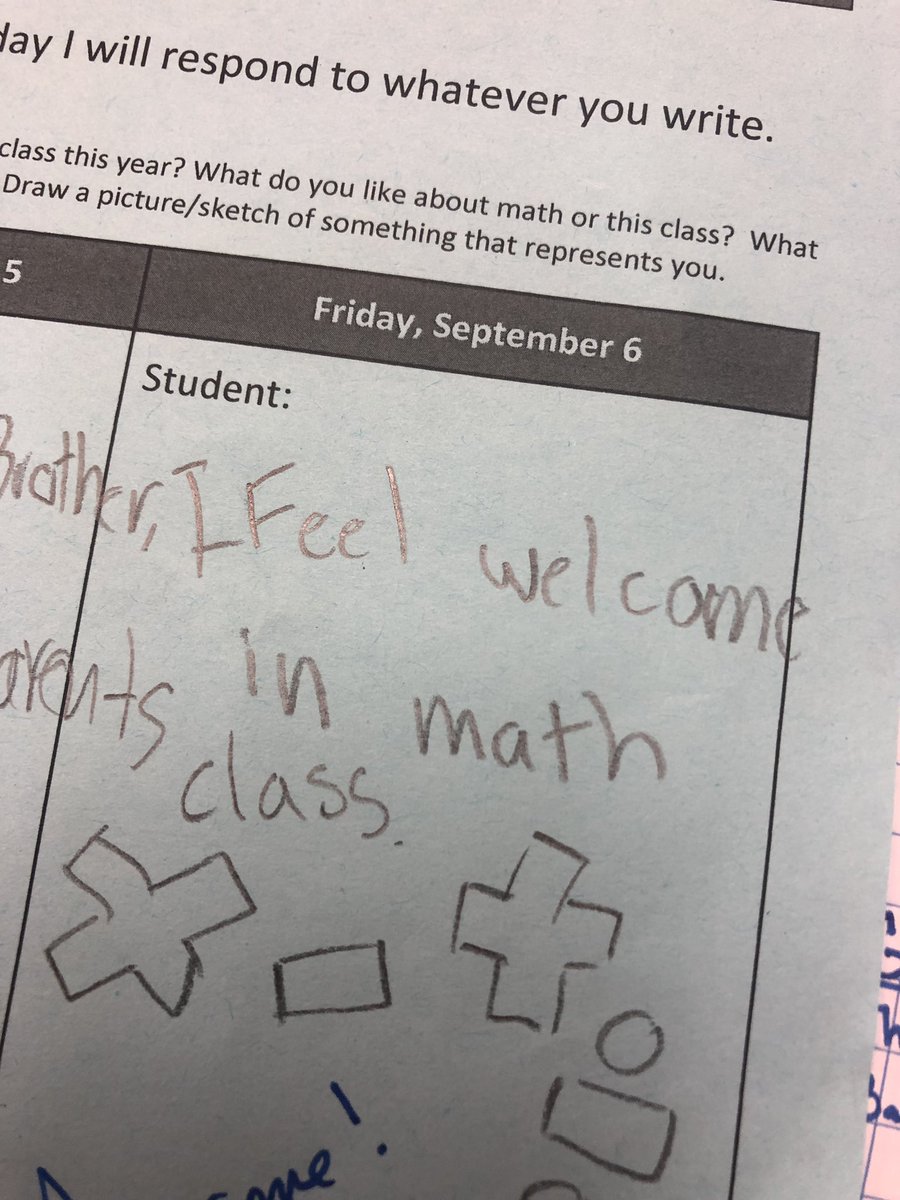 day I will respond to whatever you write.
class this year? What do you like about math or this class? What
Draw a picture/sketch of something that represents you.
5
Friday, September 6
Student:
Brother, I Feel welcome
arents in math
class.